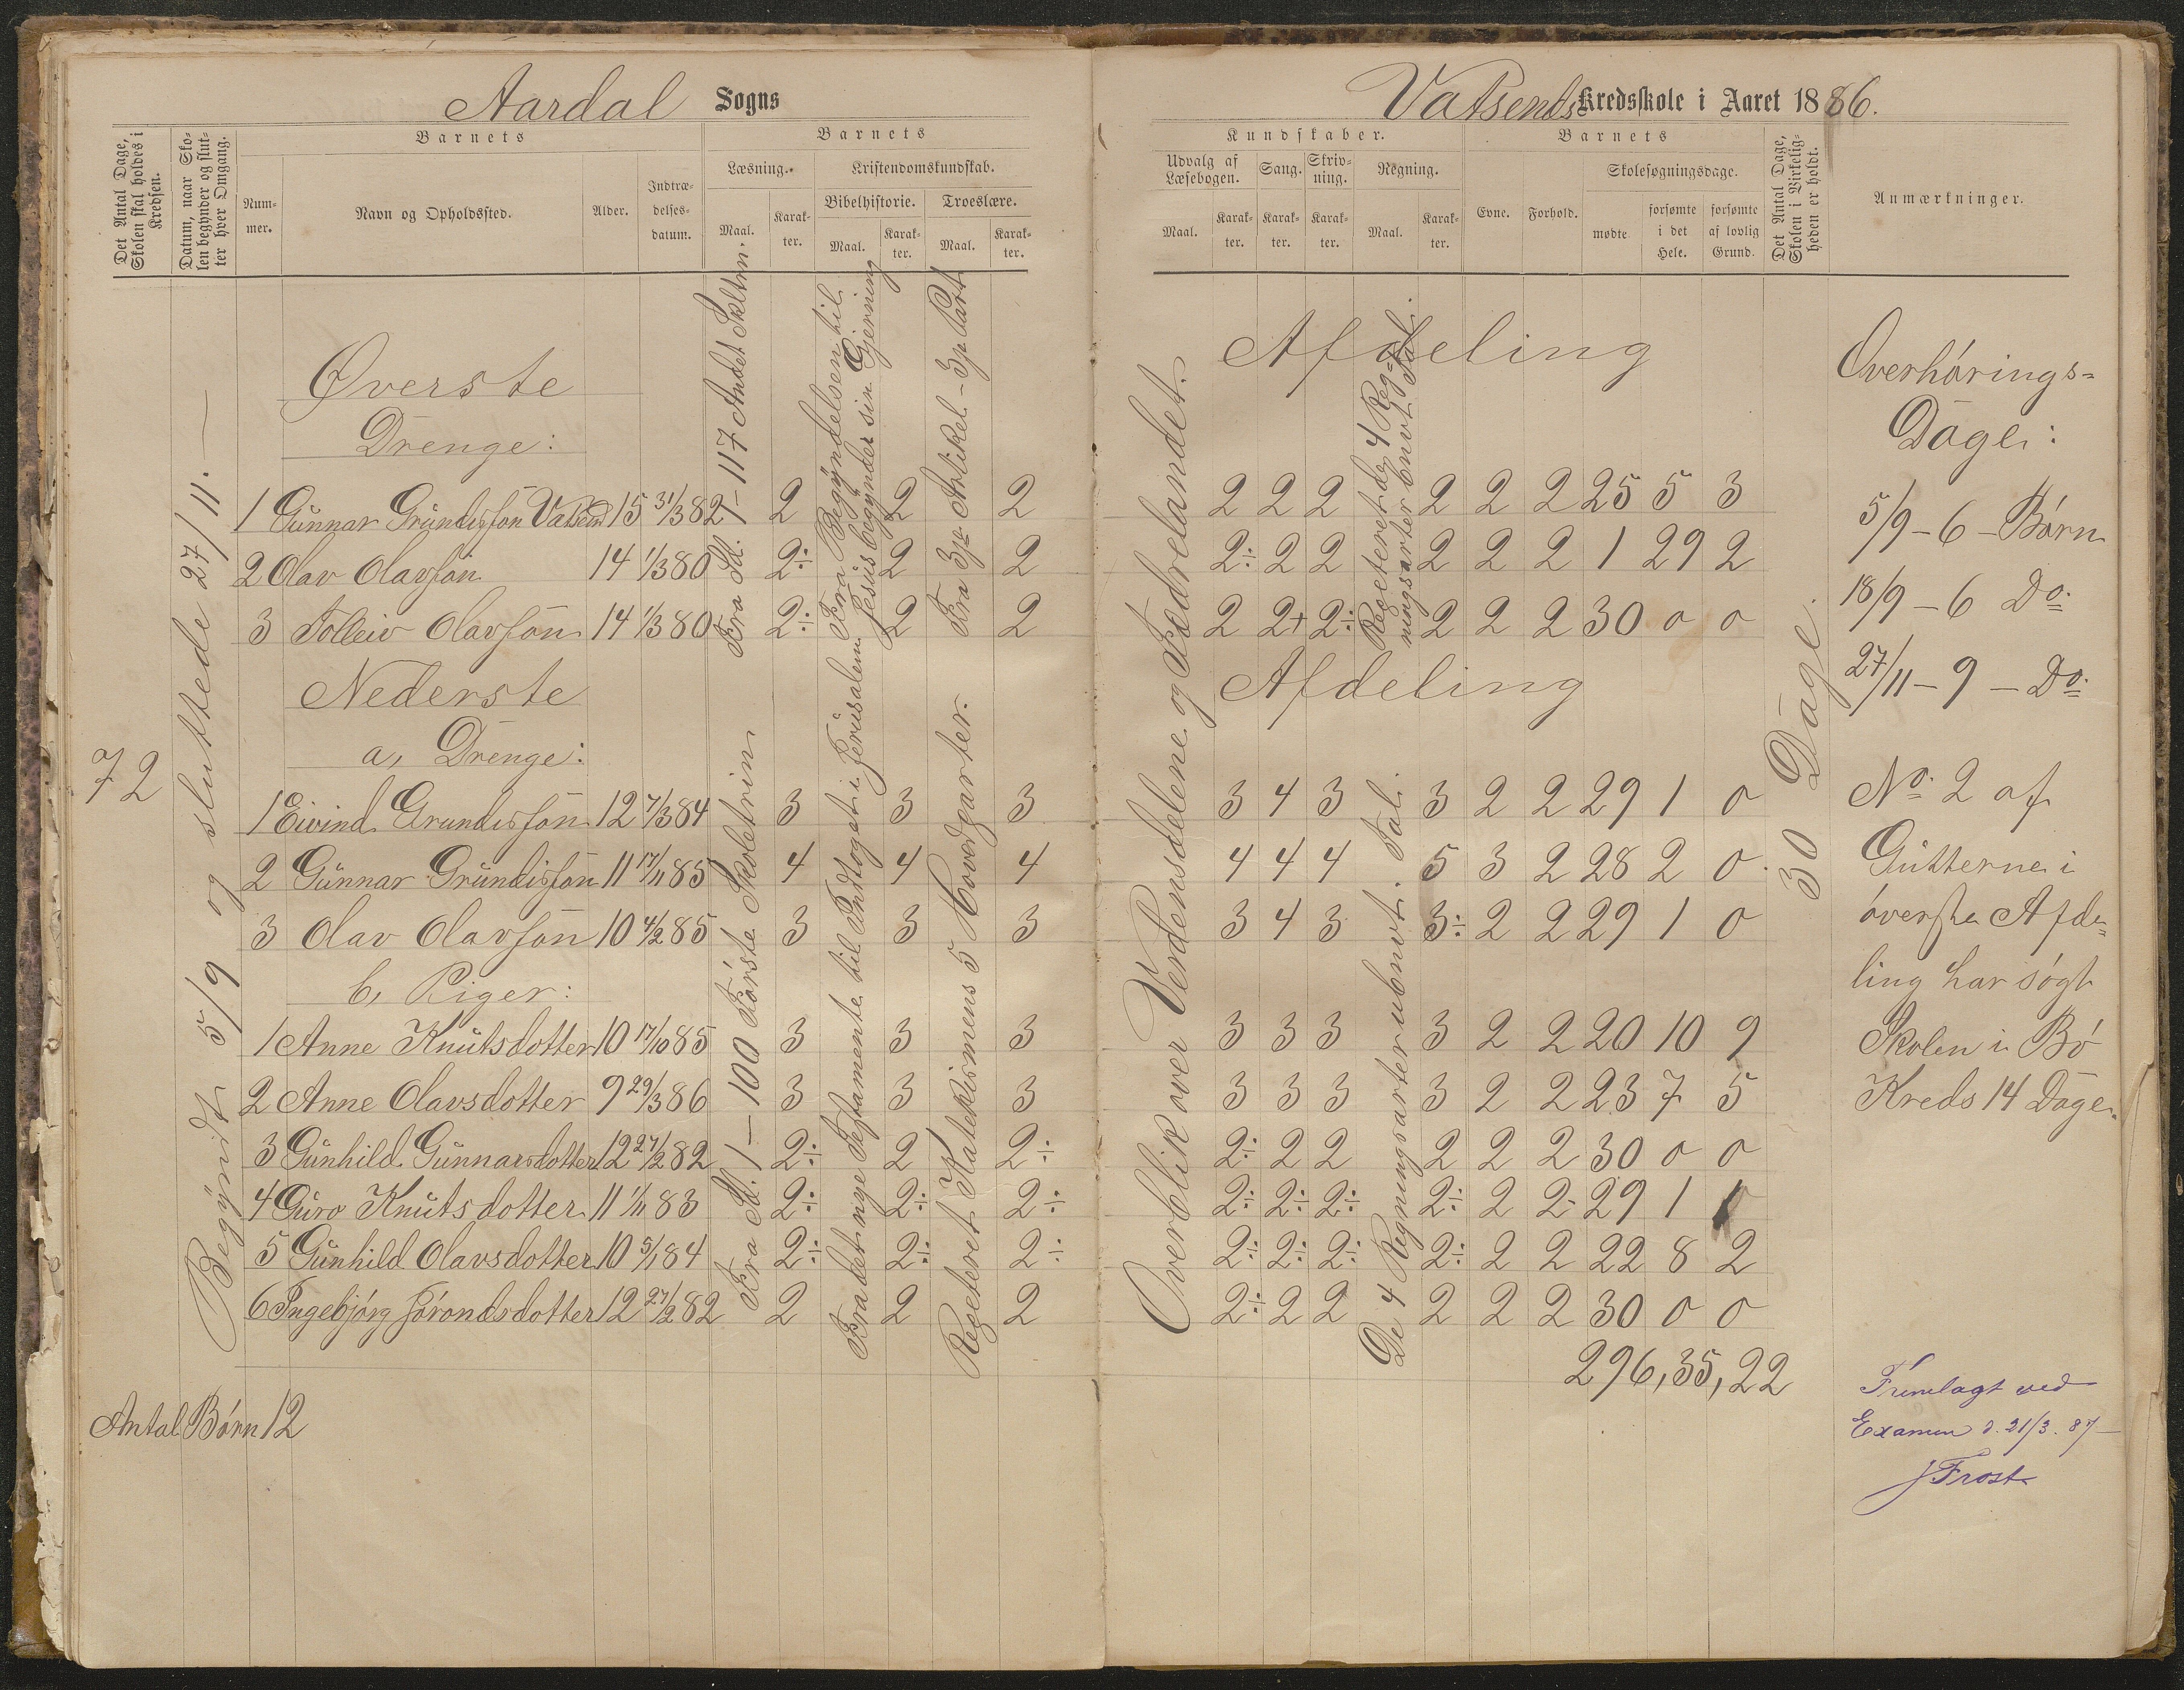 Aardal Sogns
Det Antal Dage, Skolen skal holdes i Kredsen.
Datum, naar Skolen begynder og slutter hver Omgang.
Barnets
Nummer.
Navn og Opholdssted.
Alder.
Indtrædelsesdatum.
Barnets
Læsning.
Maal.
Karakter.
Kristendomskundskab.
Bibelhistorie.
Maal.
Karakter.
Troeslære.
Maal.
Karakter.
72
Begyndt 5/9 og sluttede 27/11.
Øverste
Drenge:
1 Gunnar Grundisson Vatsend 15 31/3 82 2 2 2
2 Olav Olavson 14 1/3 80 2÷ 2 2
3 Folleiv Olavson 14 1/3 80 2÷ 2 2
Fra St. 1 – 117 Andet Skltrin.
Fra Begyndelsen til
Jesus begynder sin Gjerning
Fra 3je Artikel – 3je Part
Nederste
a, Drenge:
1 Eivind Grundisson 12 7/3 84 3 3 3
2 Gunnar Grundisson 11 17/11 85 4 4 4
3 Olav Olavson 10 4/2 85 3 3 3
b, Piger:
1 Anne Knutsdotter 10 17/10 85 3 3 3
2 Anne Olavsdotter 9 29/3 86 3 3 3
3 Gunhild Gunnarsdotter 12 27/2 82 2÷ 2 2÷
4 Guro Knutsdotter 11 1/11 83 2÷ 2÷ 2÷
5 Gunhild Olavsdotter 10 5/1 84 2÷ 2÷ 2÷
6 Ingebjørg Torondsdotter 12 27/2 82 2 2 2
Fra St. 1 – 100 Første Skoletrin
Fra det nye Testamente til Indtoget i Jerusalem
Repeteret Katekismens 5 Hovedparter.
Antal Børn 12
Vatsends Kredsskole i Aaret 1886.
Kundskaber.
Udvalg af Læsebogen.
Maal.
Karakter.
Sang.
Karakter.
Skrivning.
Karakter.
Regning.
Maal.
Karakter.
Barnets
Evne.
Forhold.
Skolesøgningsdage.
mødte
forsømte i det Hele.
forsømte af lovlig Grund.
Det Antal Dage, Skolen i Virkeligheden er holdt.
Anmærkninger.
Overblik over Verdensdelene og Fædrelandet.
Afdeling
2 2 2 2 2 2 25 5 3
2÷ 2 2 2 2 2 1 29 2
2 2+ 2÷ 2 2 2 30 0 0
Repeteret de 4 Reg=
ningsarter benvt Tal.
Afdeling
3 4 3 3 2 2 29 1 0
4 4 4 5 3 2 28 2 0
3 4 3 3÷ 2 2 29 1 0
3 3 3 3 2 2 20 10 9
3 3 3 3 2 2 23 7 5
2÷ 2 2 2 2 2 30 0 0
2÷ 2÷ 2÷ 2÷ 2 2 29 1 1
2÷ 2÷ 2÷ 2÷ 2 2 22 8 2
2÷ 2 2 2 2 2 30 0 0
De 4 Regningsarter ubnvt. Tal.
296, 35, 22
30 Dage.
Overhørings=
Dage:
5/9 – 6 – Børn
18/9 – 6 Do
27/11 – 9 – Do
No 2 af
Gutterne i
øverste Afde=
ling har søgt
Skolen i Bø
Kreds 14 Dage.
Fremlagt ved
Examen d. 21/3. 87 –
J Frost